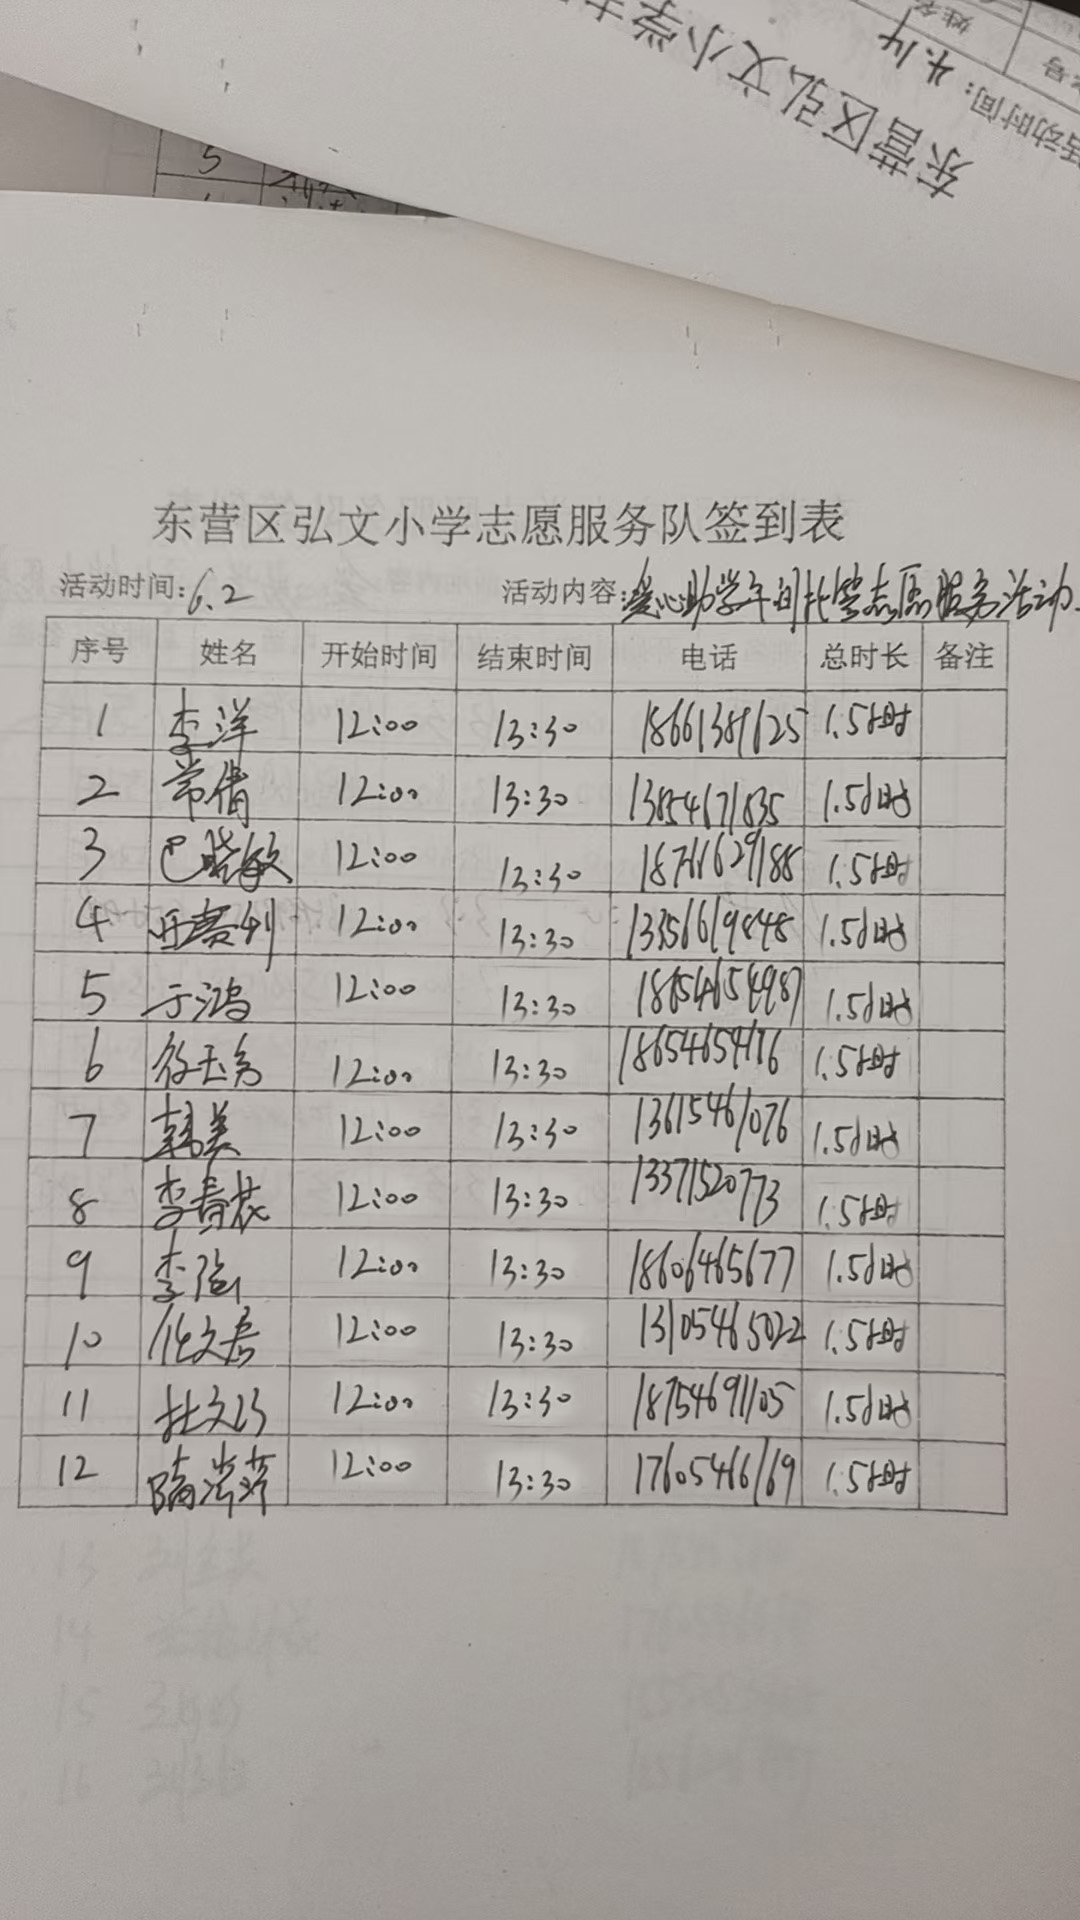 东营区弘文小学志
活动时间：4.14
姓名
5
东营区弘文小学志愿服务队签到表
活动时间：6.2 活动内容：爱心助学午间托管志愿服务活动
序号 姓名 开始时间 结束时间 电话 总时长 备注
1 李洋 12:00 13:30 18661381625 1.5小时
2 常倩 12:00 13:30 13854671835 1.5小时
3 巴晓敏 12:00 13:30 18761629188 1.5小时
4 12:00 13:30 13356619848 1.5小时
5 于鸿 12:00 13:30 18654654987 1.5小时
6 徐玉 12:00 13:30 18654654176 1.5小时
7 韩美 12:00 13:30 13615461076 1.5小时
8 李春花 12:00 13:30 13371520773 1.5小时
9 李强 12:00 13:30 18606465677 1.5小时
10 任文君 12:00 13:30 13105465022 1.5小时
11 杜文巧 12:00 13:30 18754691105 1.5小时
12 隋 12:00 13:30 17605466169 1.5小时
13
14
15
16